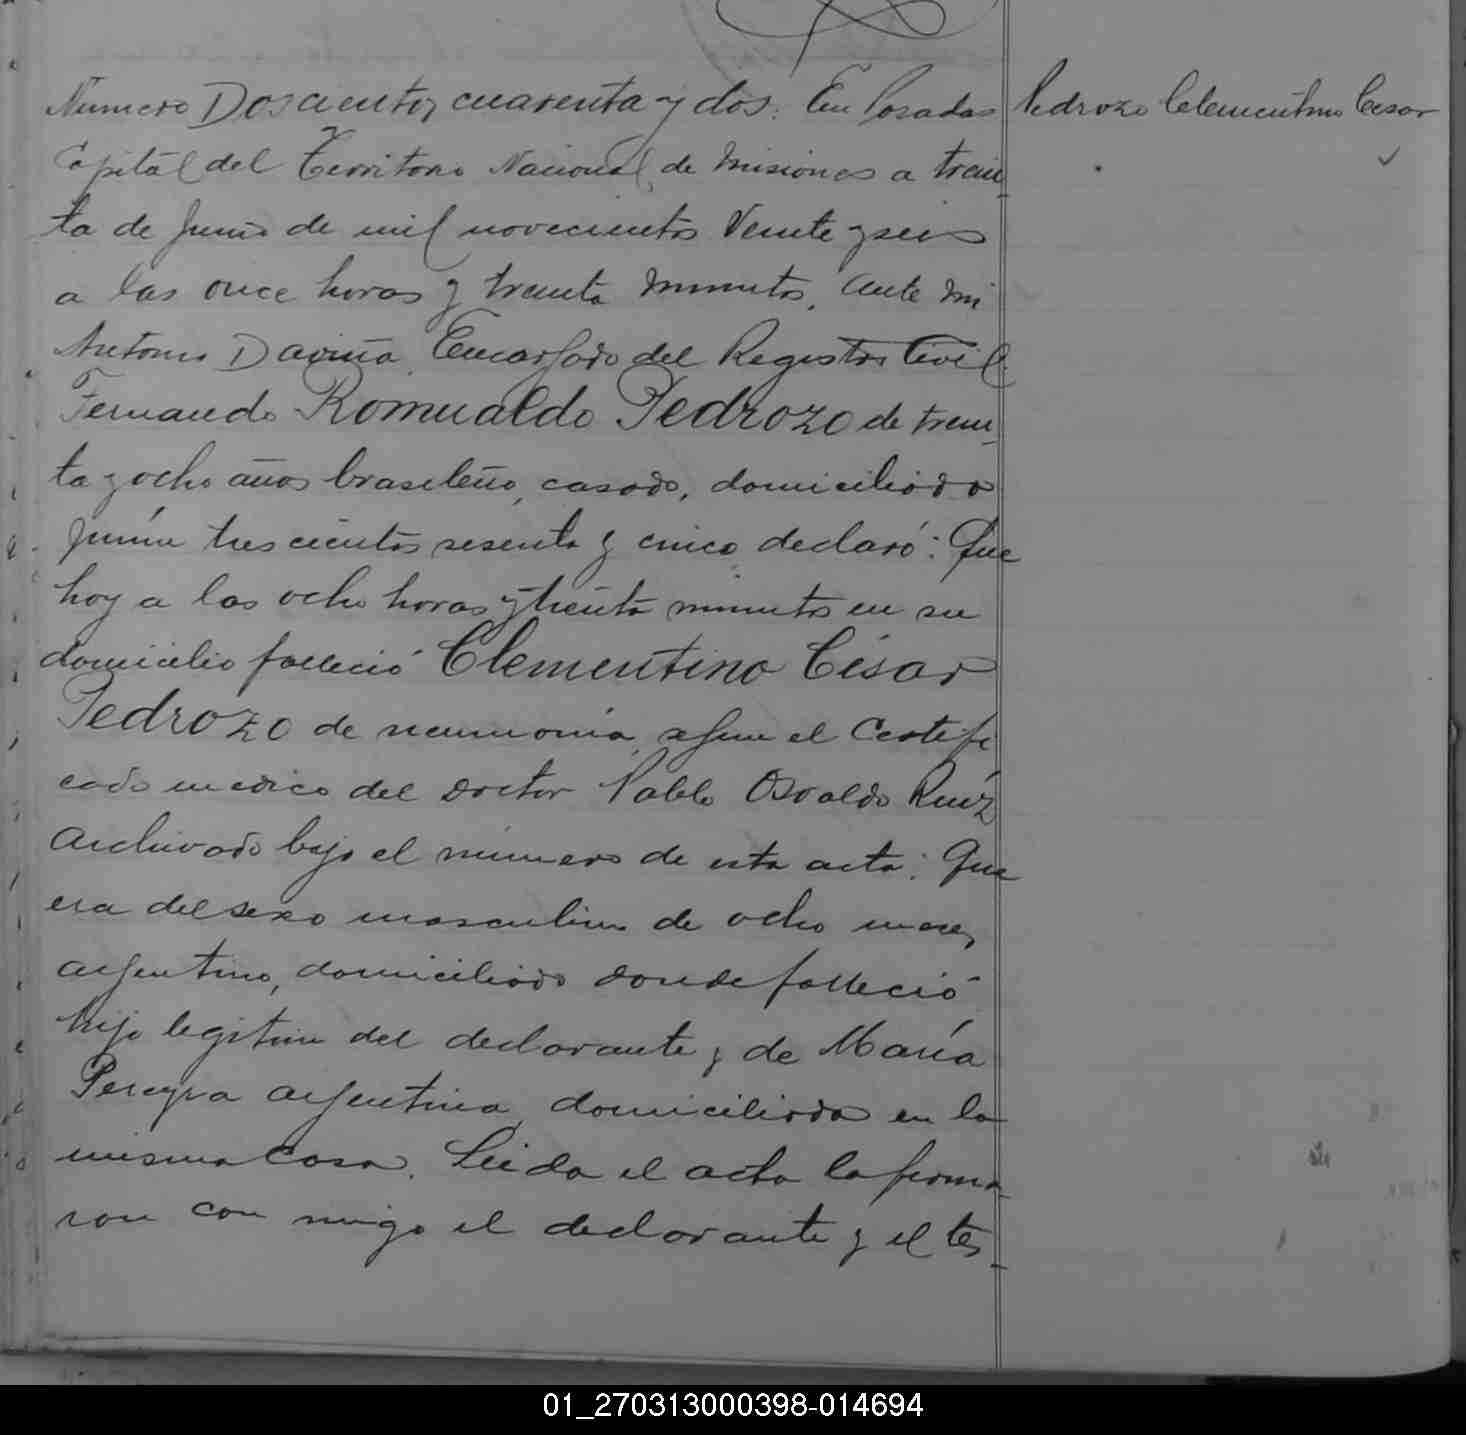 Numero Doscientos cuarenta y dos. En Posadas
Capital del Territorio Nacional de Misiones a trein
ta de Junio de mil novecientos veinte y seis
a las once horas y treinta minutos, ante mi
Antonio Daviña, Encargado del Registro Civil
Fernando Romualdo Pedrozo de trein
ta y ocho años brasileño, casado, domiciliado
Junín trescientos sesenta y cinco declaró: Que
hoy a las ocho horas y treinta minutos en su
domicilio falleció Clementino César
Pedrozo de neumonía según el Certifi
cado medico del doctor Pablo Osvaldo Ruíz
archivado bajo el número de esta acta: Que
era del sexo masculino de ocho meses,
argentino, domiciliado donde falleció
hijo legitimo del declarante y de María
Pereyra argentina domiciliada en la
misma casa. Leida el acta la firma
ron con migo el declarante y el tes
Pedrozo Clementino Cesar
01_270313000398-014694